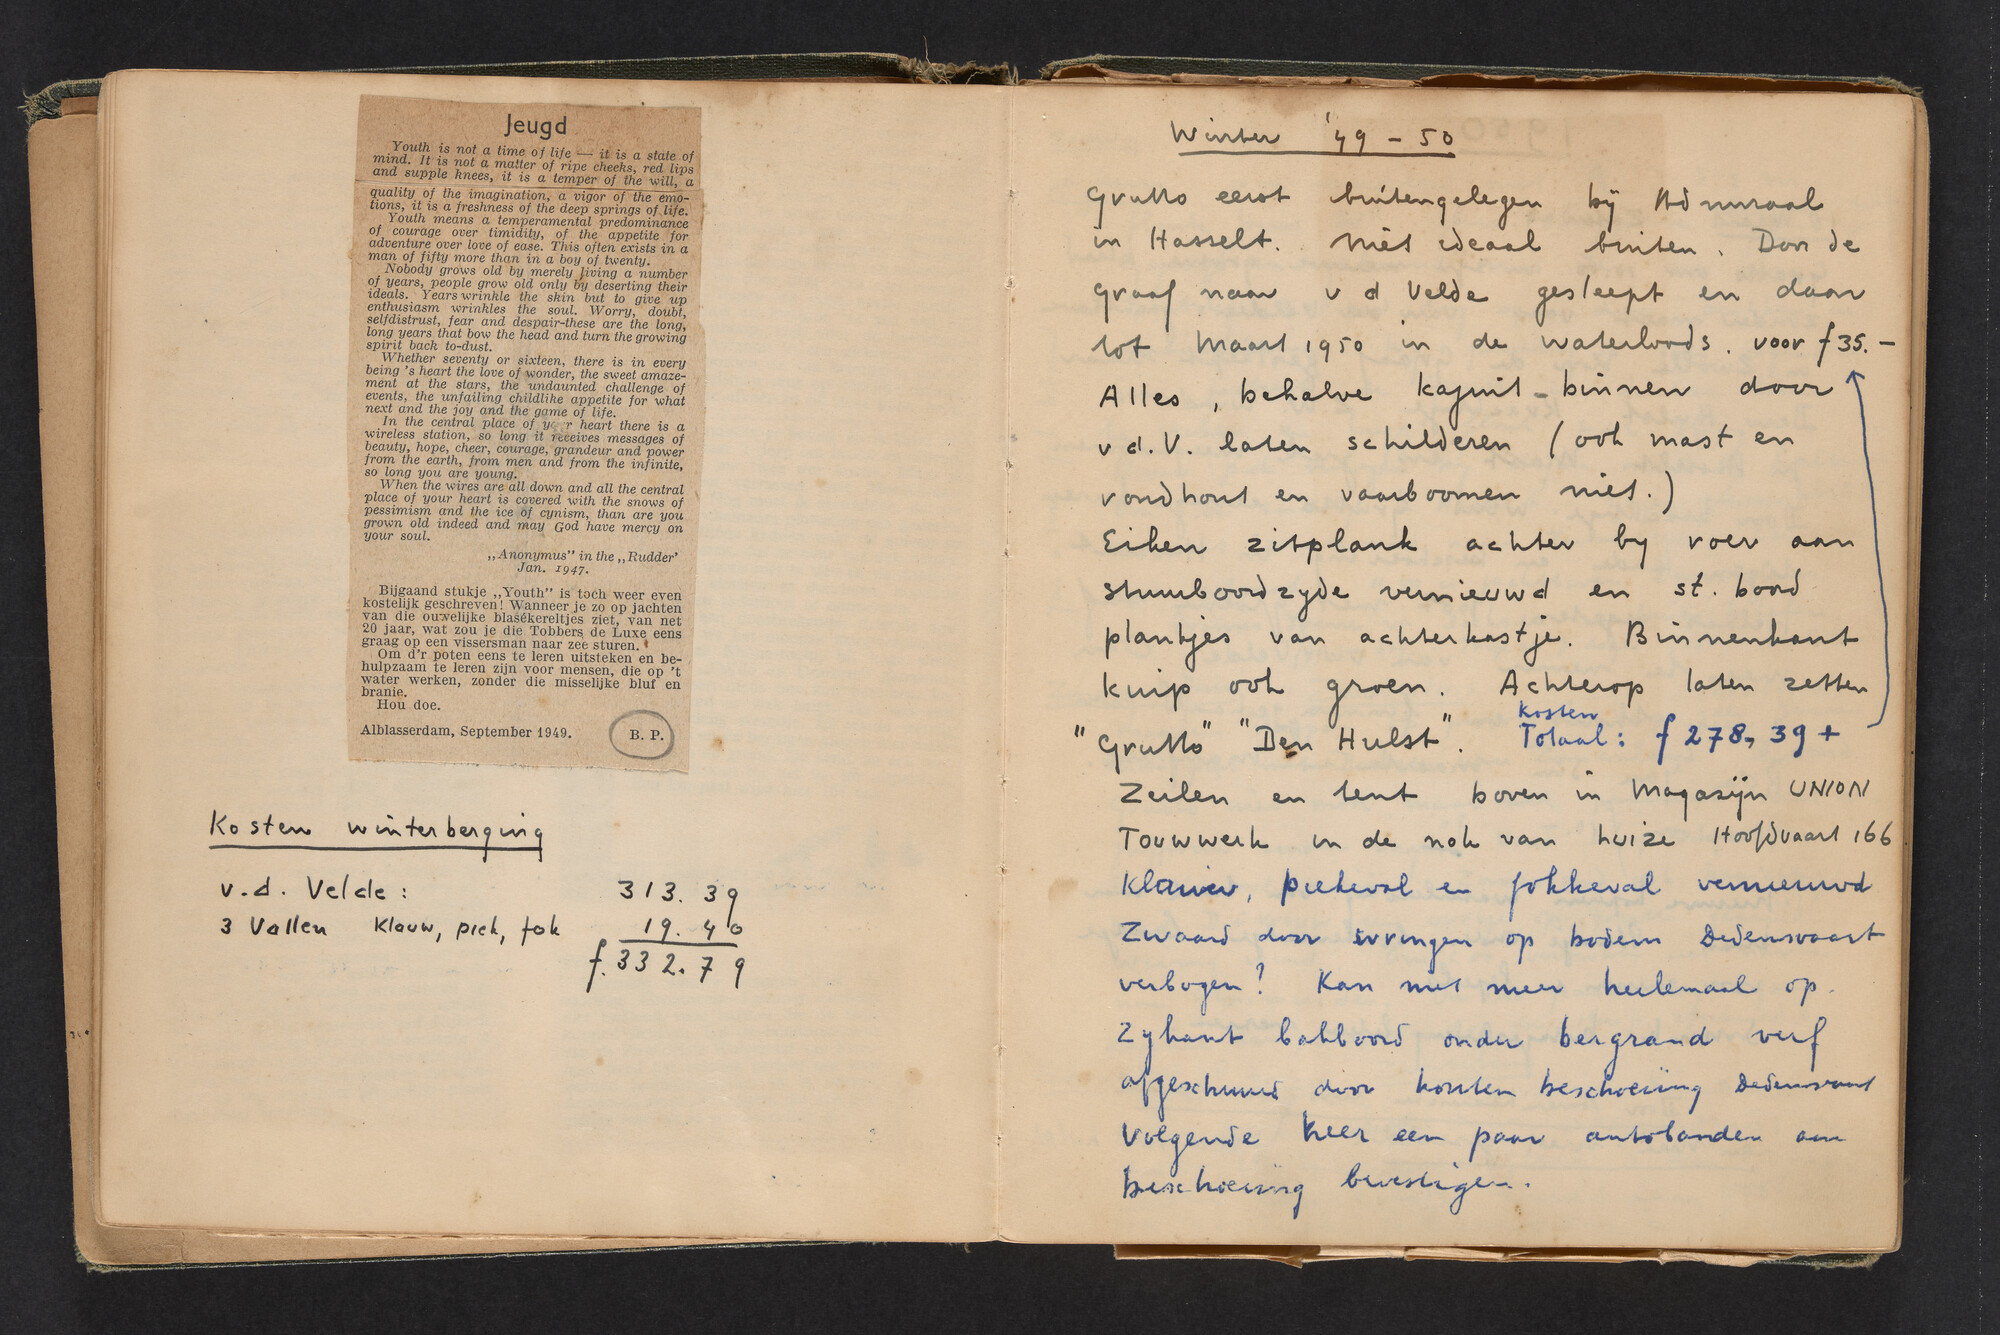 Jeugd
Youth is not a time of life — it is a state of
mind. It is not a matter of ripe cheeks, red lips
and supple knees, it is a temper of the will, a
quality of the imagination, a vigor of the emo-
tions, it is a freshness of the deep springs of life.
Youth means a temperamental predominance
of courage over timidity, of the appetite for
adventure over love of ease. This often exists in a
man of fifty more than in a boy of twenty.
Nobody grows old by merely living a number
of years, people grow old only by deserting their
ideals. Years wrinkle the skin but to give up
enthusiasm wrinkles the soul. Worry, doubt,
selfdistrust, fear and despair-these are the long,
long years that bow the head and turn the growing
spirit back to-dust.
Whether seventy or sixteen, there is in every
being 's heart the love of wonder, the sweet amaze-
ment at the stars, the undaunted challenge of
events, the unfailing childlike appetite for what
next and the joy and the game of life.
In the central place of your heart there is a
wireless station, so long it receives messages of
beauty, hope, cheer, courage, grandeur and power
from the earth, from men and from the infinite,
so long you are young.
When the wires are all down and all the central
place of your heart is covered with the snows of
pessimism and the ice of cynism, than are you
grown old indeed and may God have mercy on
your soul.
„Anonymus” in the „Rudder’
Jan. 1947.
Bijgaand stukje „Youth” is toch weer even
kostelijk geschreven! Wanneer je zo op jachten
van die ouwelijke blasékereltjes ziet, van net
20 jaar, wat zou je die Tobbers de Luxe eens
graag op een vissersman naar zee sturen.
Om d’r poten eens te leren uitsteken en be-
hulpzaam te leren zijn voor mensen, die op ’t
water werken, zonder die misselijke bluf en
branie.
Hou doe.
Alblasserdam, September 1949. B. P.
Kosten winterberging
v.d. Velde: 313.39
3 Vallen Klauw, piek, fok 19.40
f. 332.79
Winter '49 - 50
Grutto eerst buitengelegen bij Admiraal
in Hasselt. Niet ideaal buiten. Door de
Graaf naar v d Velde gesleept en daar
tot Maart 1950 in de waterloods. voor f 35.-
Alles, behalve kajuit-binnen door
v d. V. laten schilderen (ook mast en
rondhout en vaarboomen niet.)
Eiken zitplank achter by roer aan
stuurboordzyde vernieuwd en st. boord
plankjes van achterkastje. Binnenkant
kuip ook groen. Achterop laten zetten
"Grutto" "Den Hulst". Kosten Totaal: f 278,39 +
Zeilen en tent boven in Magazijn UNION
Touwwerk in de nok van huize Hoofdvaart 166
Klauw, piekeval en fokkeval vernieuwd
Zwaard door wringen op bodem Dedemsvaart
verbogen? Kan niet meer heelemaal op.
Zykant bakboord onder bergrand verf
afgeschuurd door houten beschoeiing Dedemsvaart
Volgende keer een paar autobanden aan
beschoeiing bevestigen.